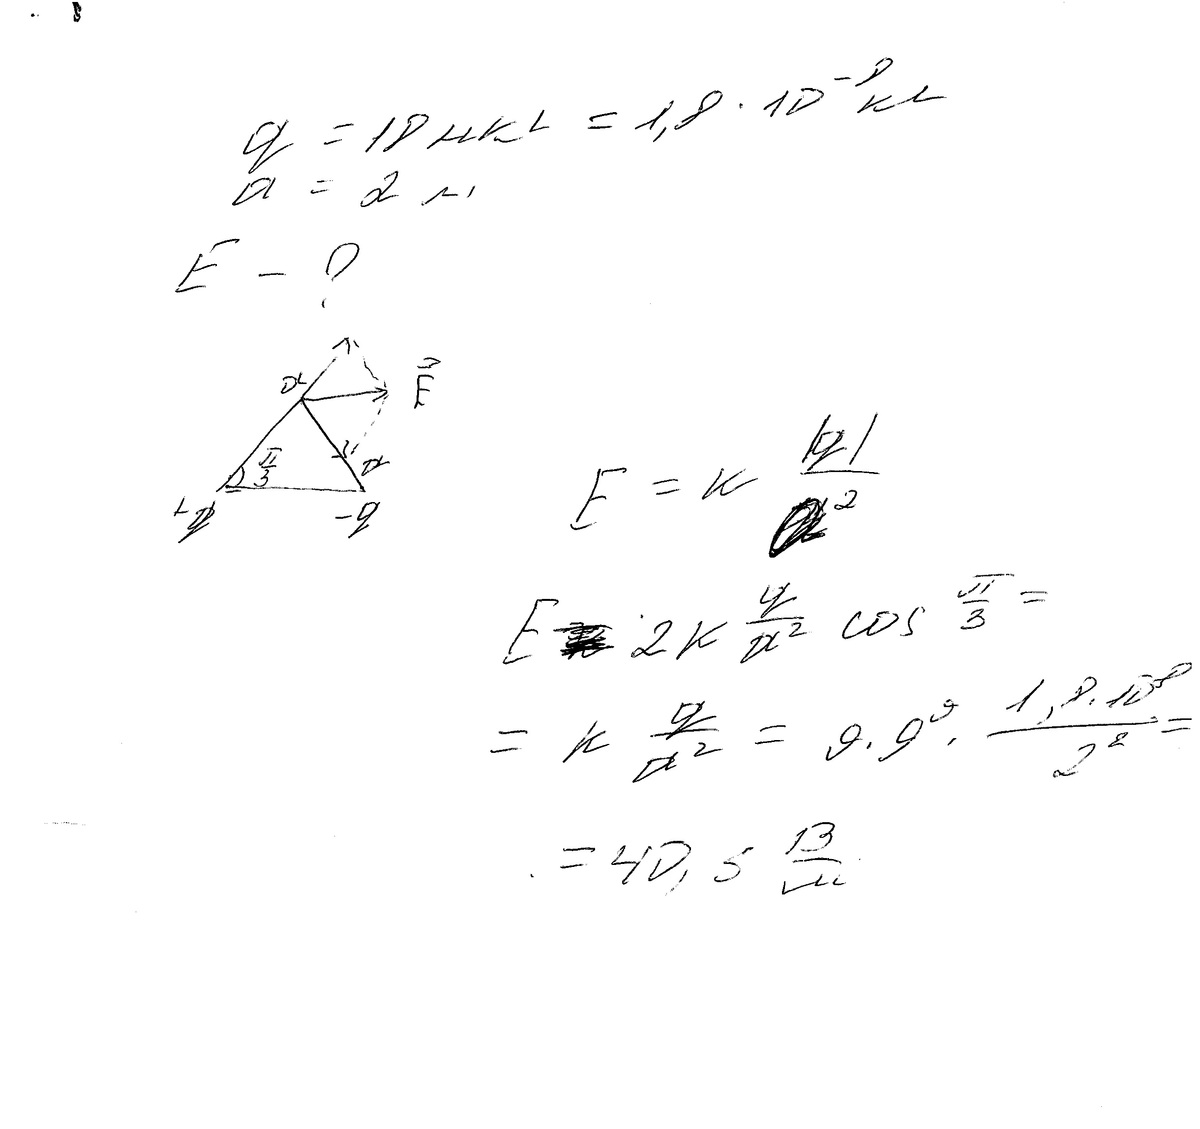 q = 18 мкКл = 1,8 · 10⁻⁸ Кл
a = 2 м
E - ?
a
E⃗
π/3
a
+q
-q
E = k |q|/a²
E 2k q/a² cos π/3 =
= k q/a² = 9 · 9⁹ · 1,8 · 10⁸/2² =
= 40,5 В/м